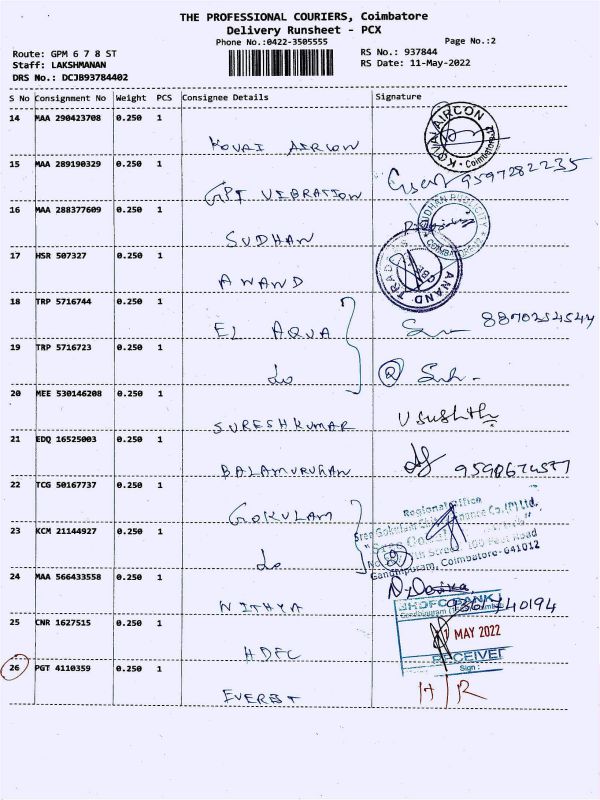 THE PROFESSIONAL COURIERS, Coimbatore
Delivery Runsheet - PCX
Phone No.:0422-3505555
Page No.:2
Route: GPM 6 7 8 ST
RS No.: 937844
Staff: LAKSHMANAN
RS Date: 11-May-2022
DRS No.: DCJB93784402
S No Consignment No Weight PCS Consignee Details Signature
14 MAA 290423708 0.250 1
KOVAI AIRCON
KOVAI AIRCON Coimbatore
15 MAA 289190329 0.250 1
GPT VIBRATION 9597282235
16 MAA 288377609 0.250 1
SUDHAN
SUDHAN PUBLICITY
17 HSR 507327 0.250 1
ANAND
ANAND TRADERS
18 TRP 5716744 0.250 1
EL AQUA
19 TRP 5716723 0.250 1
do
20 MEE 530146208 0.250 1
SURESHKUMAR
21 EDQ 16525003 0.250 1
BALAMURUGAN
22 TCG 50167737 0.250 1
GOKULAM
Regional Office
Finance Co.(P) Ltd.
100 Feet Road
Gandhipuram, Coimbatore-641012
23 KCM 21144927 0.250 1
do
24 MAA 566433558 0.250 1
NITHYA
25 CNR 1627515 0.250 1
HDFC
HDFC BANK
MAY 2022
RECEIVED
Sign :
26 PGT 4110359 0.250 1
EVEREST
H/R